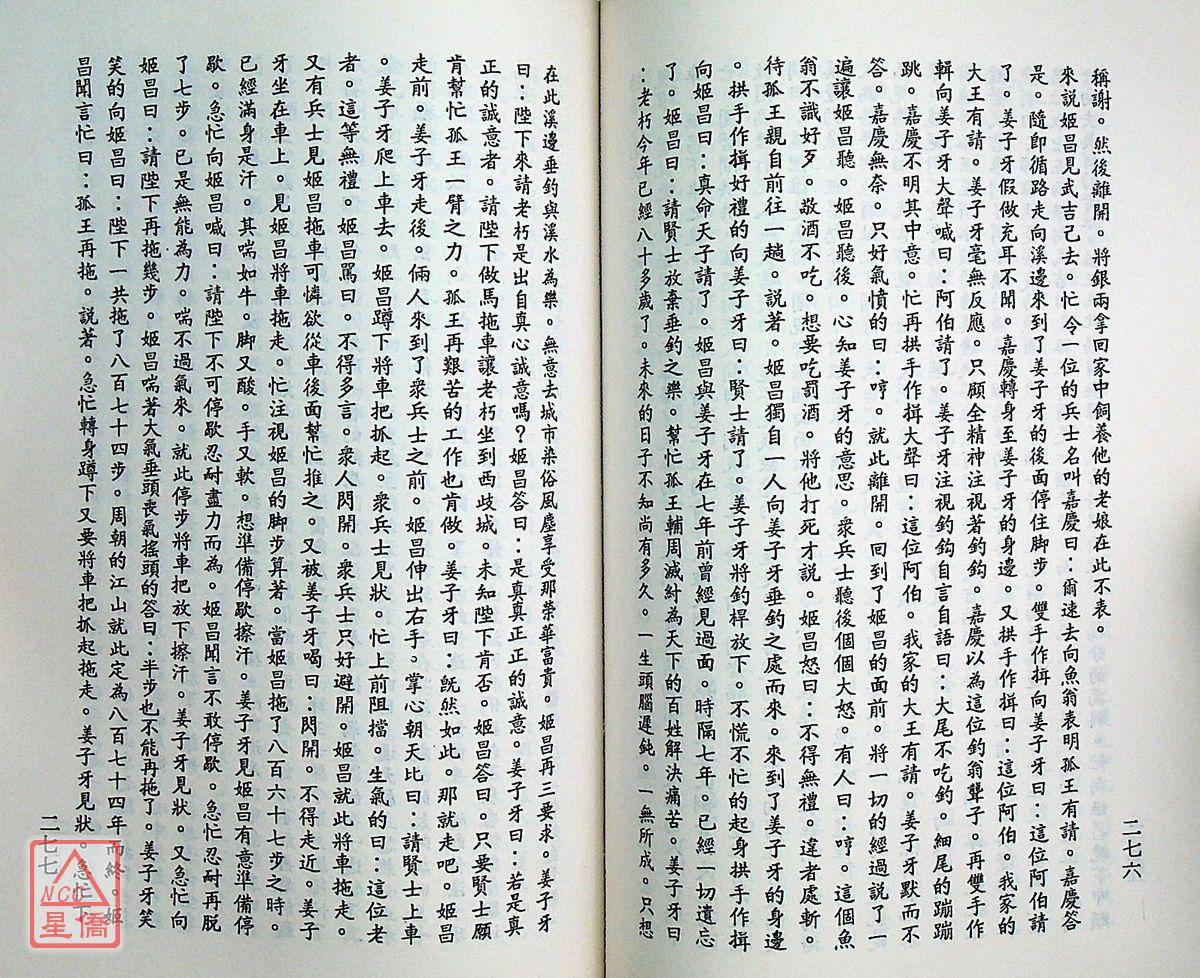 稱謝。然後離開。將銀兩拿回家中飼養他的老娘在此不表。
來說姬昌見武吉己去。忙令一位的兵士名叫嘉慶曰:爾速去向魚翁表明孤王有請。嘉慶答
是。隨即循路走向溪邊來到了姜子牙的後面停住脚步。雙手作揖向姜子牙曰:這位阿伯請
了。姜子牙假做充耳不聞。嘉慶轉身至姜子牙的身邊。又拱手作揖曰:這位阿伯。我家的
大王有請。姜子牙毫無反應。只顧全精神注視著釣鈎。嘉慶以為這位釣翁聾子。再雙手作
輯向姜子牙大聲喊曰:阿伯請了。姜子牙注視釣鈎自言自語曰:大尾不吃釣。細尾的蹦蹦
跳。嘉慶不明其中意。忙再拱手作揖大聲曰:這位阿伯。我家的大王有請。姜子牙默而不
答。嘉慶無奈。只好氣憤的曰:哼。就此離開。回到了姬昌的面前。將一切的經過說了一
遍讓姬昌聽。姬昌聽後。心知姜子牙的意思。衆兵士聽後個個大怒。有人曰:哼。這個魚
翁不識好歹。敬酒不吃。想要吃罰酒。將他打死才說。姬昌怒曰:不得無禮。違者處斬。
待孤王親自前往一趟。說著。姬昌獨自一人向姜子牙垂釣之處而來。來到了姜子牙的身邊
。拱手作揖好禮的向姜子牙曰:賢士請了。姜子牙將釣桿放下。不慌不忙的起身拱手作揖
向姬昌曰:真命天子請了。姬昌與姜子牙在七年前曾經見過面。時隔七年。已經一切遺忘
了。姬昌曰:請賢士放棄垂釣之樂。幫忙孤王輔周滅紂為天下的百姓解決痛苦。姜子牙曰
:老朽今年已經八十多歲了。未來的日子不知尚有多久。一生頭腦遲鈍。一無所成。只想
二七六
在此溪邊垂釣與溪水為樂。無意去城市染俗風塵享受那榮華富貴。姬昌再三要求。姜子牙
曰:陛下來請老朽是出自真心誠意嗎?姬昌答曰:是真真正正的誠意。姜子牙曰:若是真
正的誠意者。請陛下做馬拖車讓老朽坐到西歧城。未知陛下肯否。姬昌答曰。只要賢士願
肯幫忙孤王一臂之力。孤王再艱苦的工作也肯做。姜子牙曰:既然如此。那就走吧。姬昌
走前。姜子牙走後。倆人來到了衆兵士之前。姬昌伸出右手。掌心朝天比曰:請賢士上車
。姜子牙爬上車去。姬昌蹲下將車把抓起。衆兵士見狀。忙上前阻擋。生氣的曰:這位老
者。這等無禮。姬昌罵曰。不得多言。衆人閃開。衆兵士只好避開。姬昌就此將車拖走。
又有兵士見姬昌拖車可憐欲從車後面幫忙推之。又被姜子牙喝曰:閃開。不得走近。姜子
牙坐在車上。見姬昌將車拖走。忙注視姬昌的脚步算著。當姬昌拖了八百六十七步之時。
已經滿身是汗。其喘如牛。脚又酸。手又軟。想準備停歇擦汗。姜子牙見姬昌有意準備停
歇。急忙向姬昌喊曰:請陛下不可停歇忍耐盡力而為。姬昌聞言不敢停歇。急忙忍耐再脫
了七步。已是無能為力。喘不過氣來。就此停步將車把放下擦汗。姜子牙見狀。又急忙向
姬昌曰:請陛下再拖幾步。姬昌喘著大氣垂頭喪氣搖頭的答曰:半步也不能再拖了。姜子牙笑
笑的向姬昌曰:陛下一共拖了八百七十四步。周朝的江山就此定為八百七十四年而終。姬
昌聞言忙曰:孤王再拖。說著。急忙轉身蹲下又要將車把抓起拖走。姜子牙見狀。急忙下
二七七
NCC
星僑